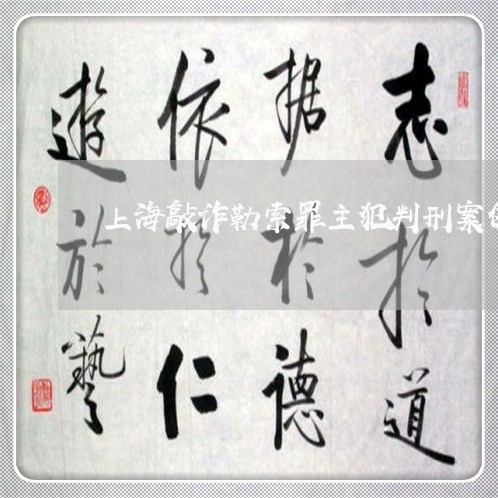 志於道
据於德
依於仁
遊於藝
上海敲诈勒索罪主犯判刑案